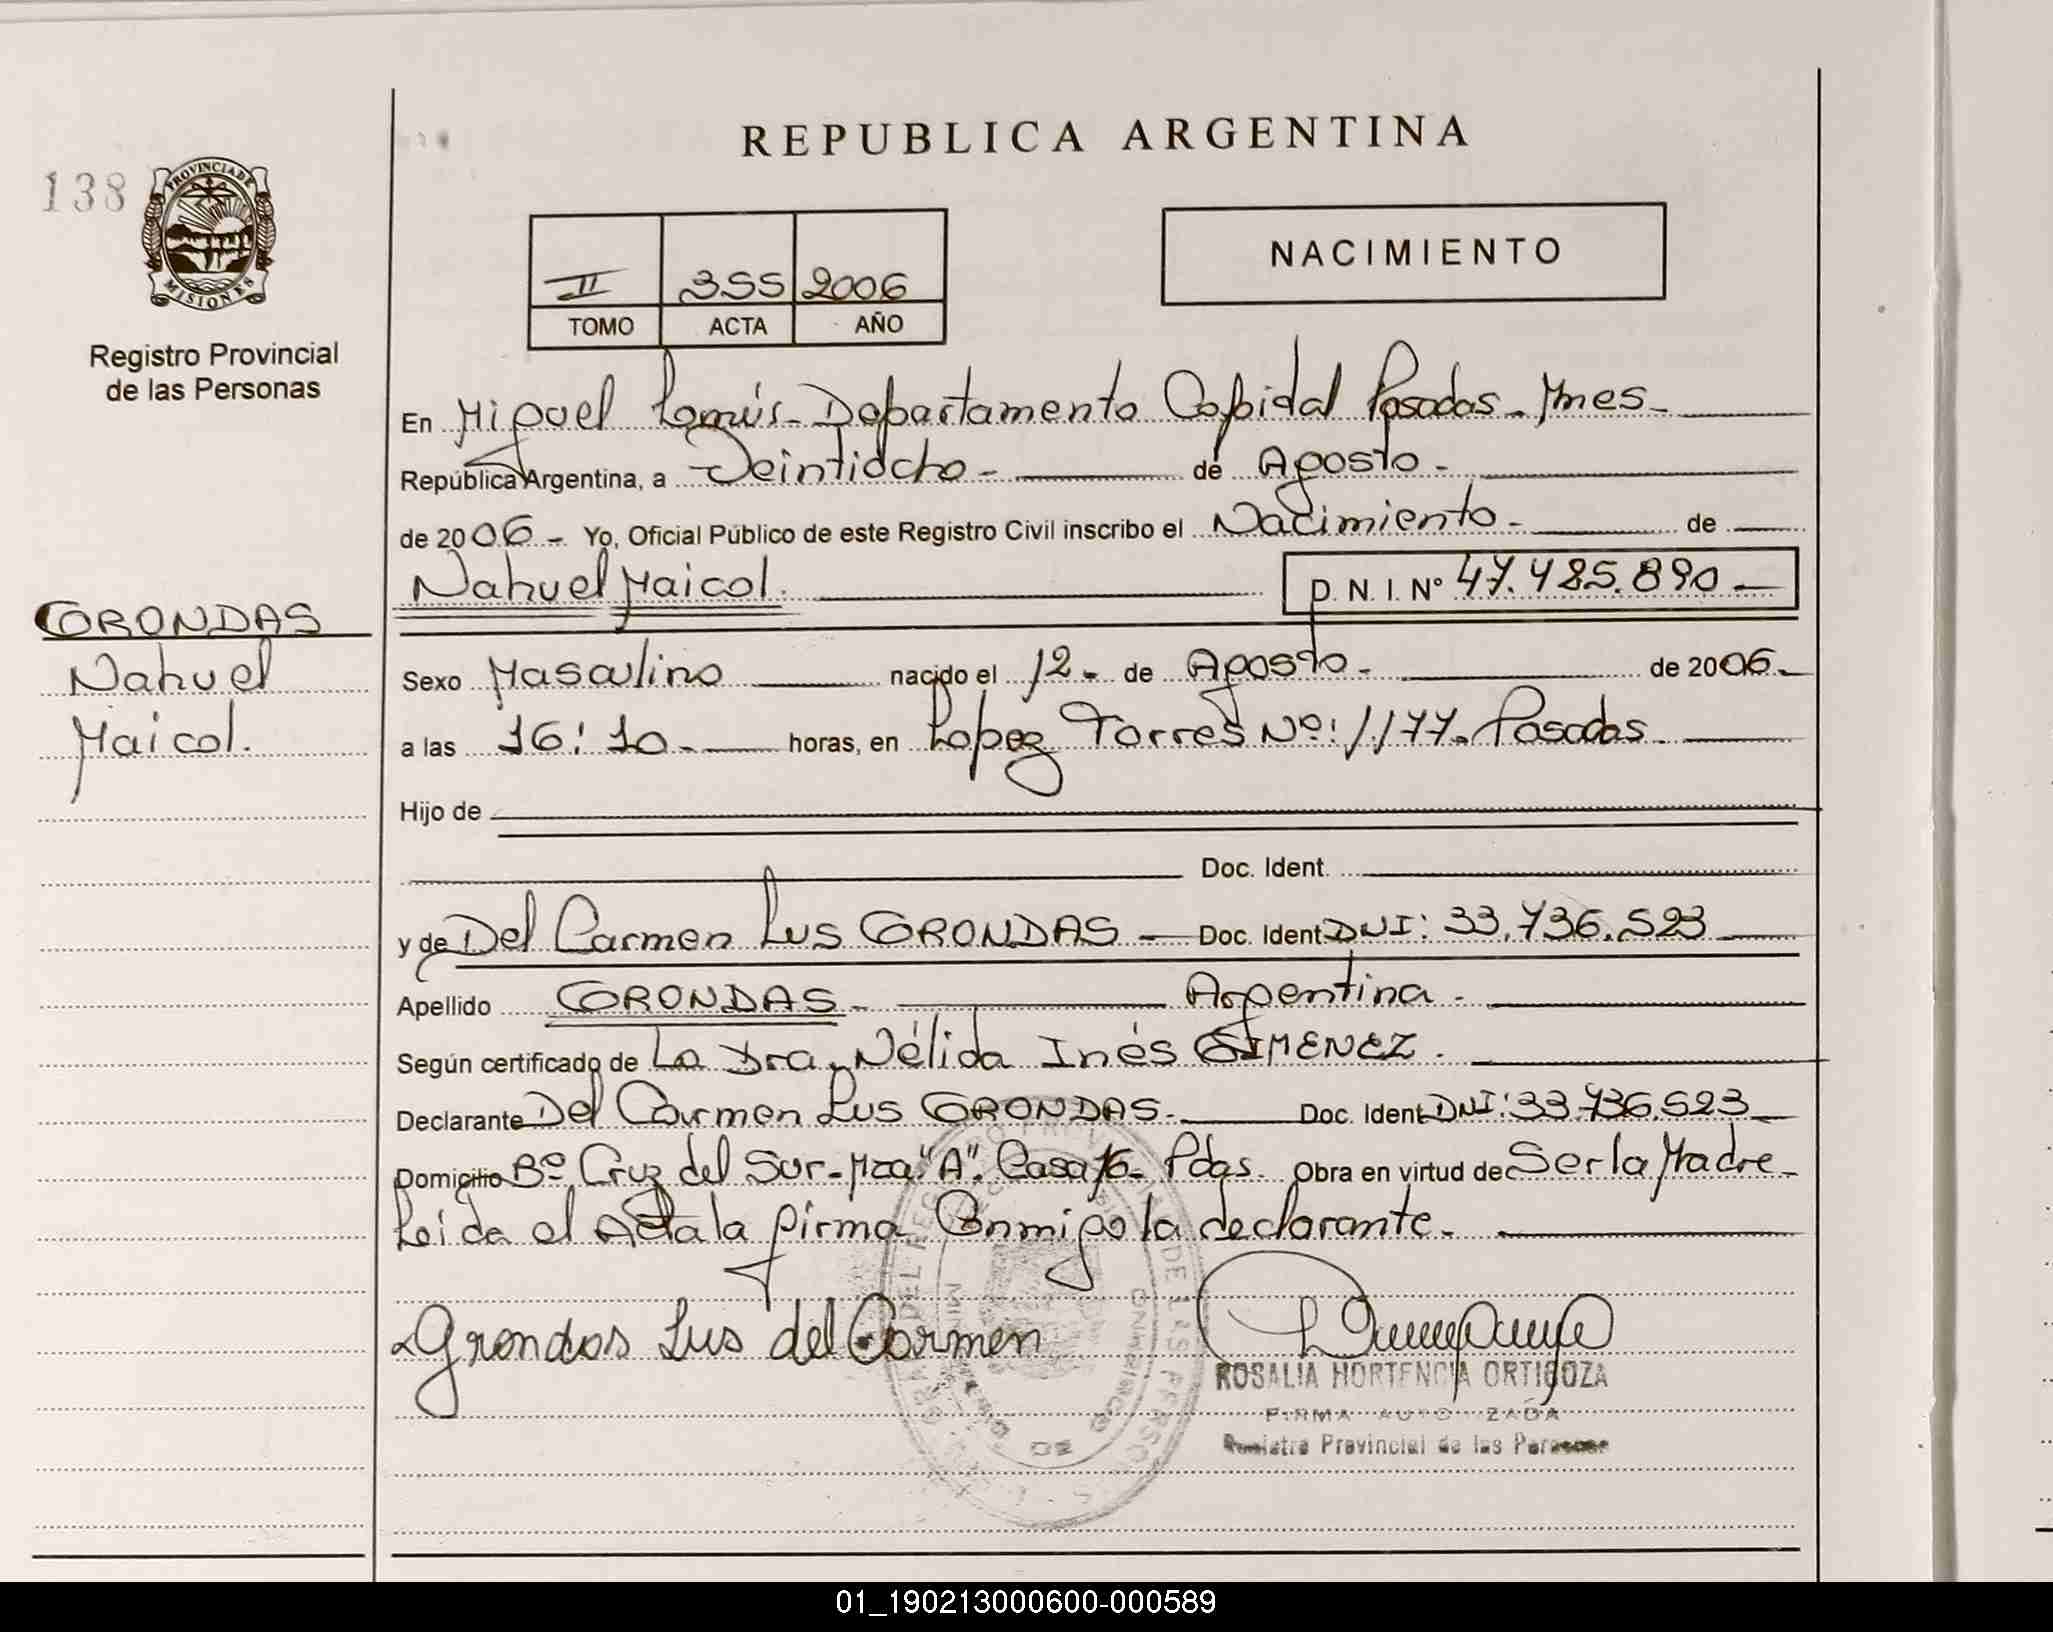 REPUBLICA ARGENTINA
138
PROVINCIA DE
MISIONES
Registro Provincial
de las Personas
NACIMIENTO
II 355 2006
TOMO ACTA AÑO
En Miguel Lanús - Departamento Capital Posadas - Mnes -
República Argentina, a Veintiocho - de Agosto -
de 2006 - Yo, Oficial Público de este Registro Civil inscribo el Nacimiento - de
Nahuel Maicol. D. N. I. Nº 47.485.890 -
GRONDAS
Nahuel
Maicol.
Sexo Masculino nacido el 12 - de Agosto - de 2006 -
a las 16:10 - horas, en Lopez Torres Nº: 1177 - Posadas
Hijo de
Doc. Ident.
y de Del Carmen Lus GRONDAS - Doc. Ident DNI: 33.736.523
Apellido GRONDAS - Argentina -
Según certificado de La Dra. Nélida Inés GIMENEZ.
Declarante Del Carmen Lus GRONDAS - Doc. Ident DNI: 33.736.523
Domicilio Bº Cruz del Sur - Mza "A". Casa 16 - Pdas. Obra en virtud de Ser la Madre -
Leida el Acta la firma Conmigo la declarante.
Grondas Lus del Carmen
ROSALIA HORTENCIA ORTIGOZA
FIRMA AUTORIZADA
Registro Provincial de las Personas
01_190213000600-000589